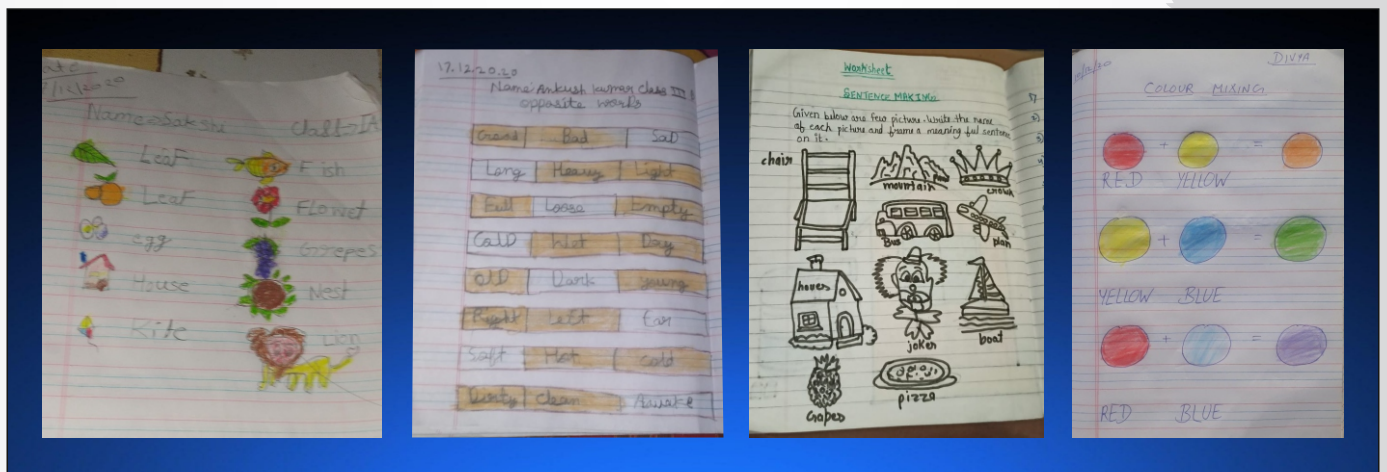 Name Sakshi Class IA
Leaf Fish
Leaf Flower
egg Grrepes
House Nest
Kite Lion
17.12.2020
Name Ankush kumar Class III
opposite words
Good Bad Sad
Long Heavy Light
Full Loose Empty
Cold Wet Dry
Old Dark young
Right Left Ear
Soft Hot cold
Dirty clean Awake
Worksheet
SENTENCE MAKING
Given below are few picture. Write the name
of each picture and frame a meaning ful sentence
on it.
chair
mountain crown
Bus plan
houes
joker boat
Gapes pizza
DIVYA
COLOUR MIXING
+ =
RED YELLOW
+ =
YELLOW BLUE
+ =
RED BLUE